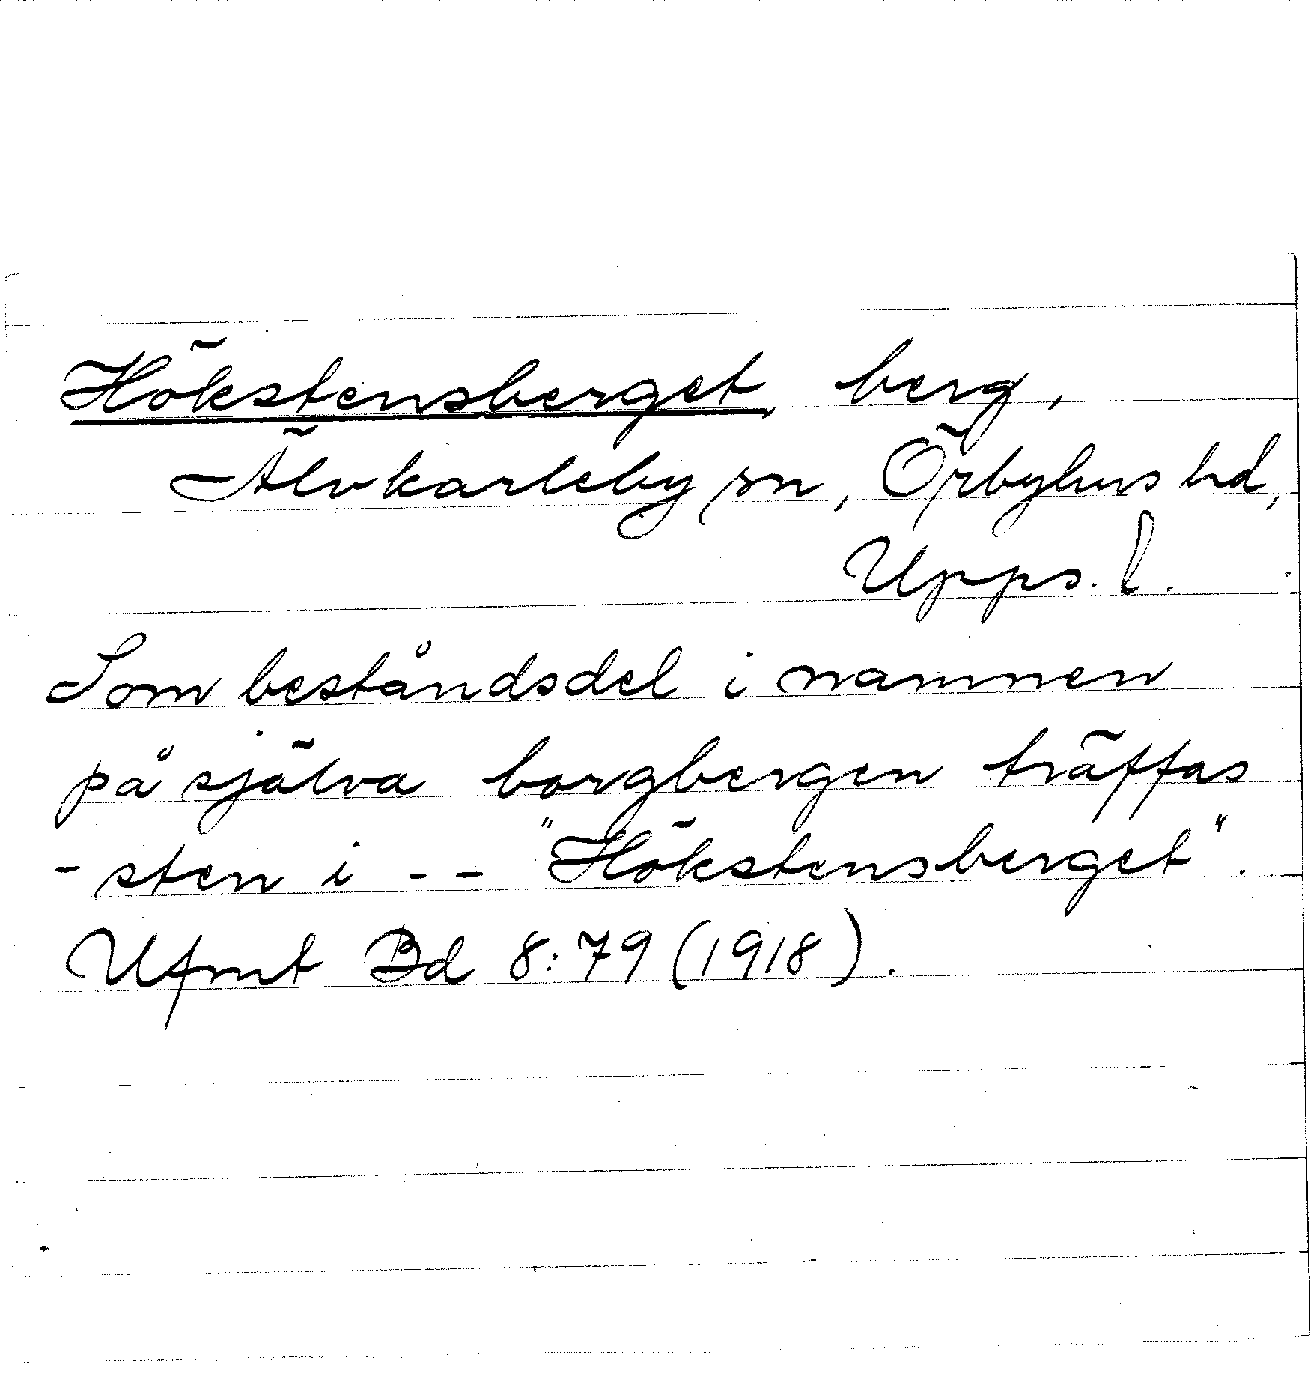 Hökstensberget, berg,
Älvkarleby sn, Örbyhus hd,
Upps. l.
Som beståndsdel i namnen
på själva borgbergen träffas
-sten i -- "Hökstensberget".
Ufmt Bd 8:79 (1918).